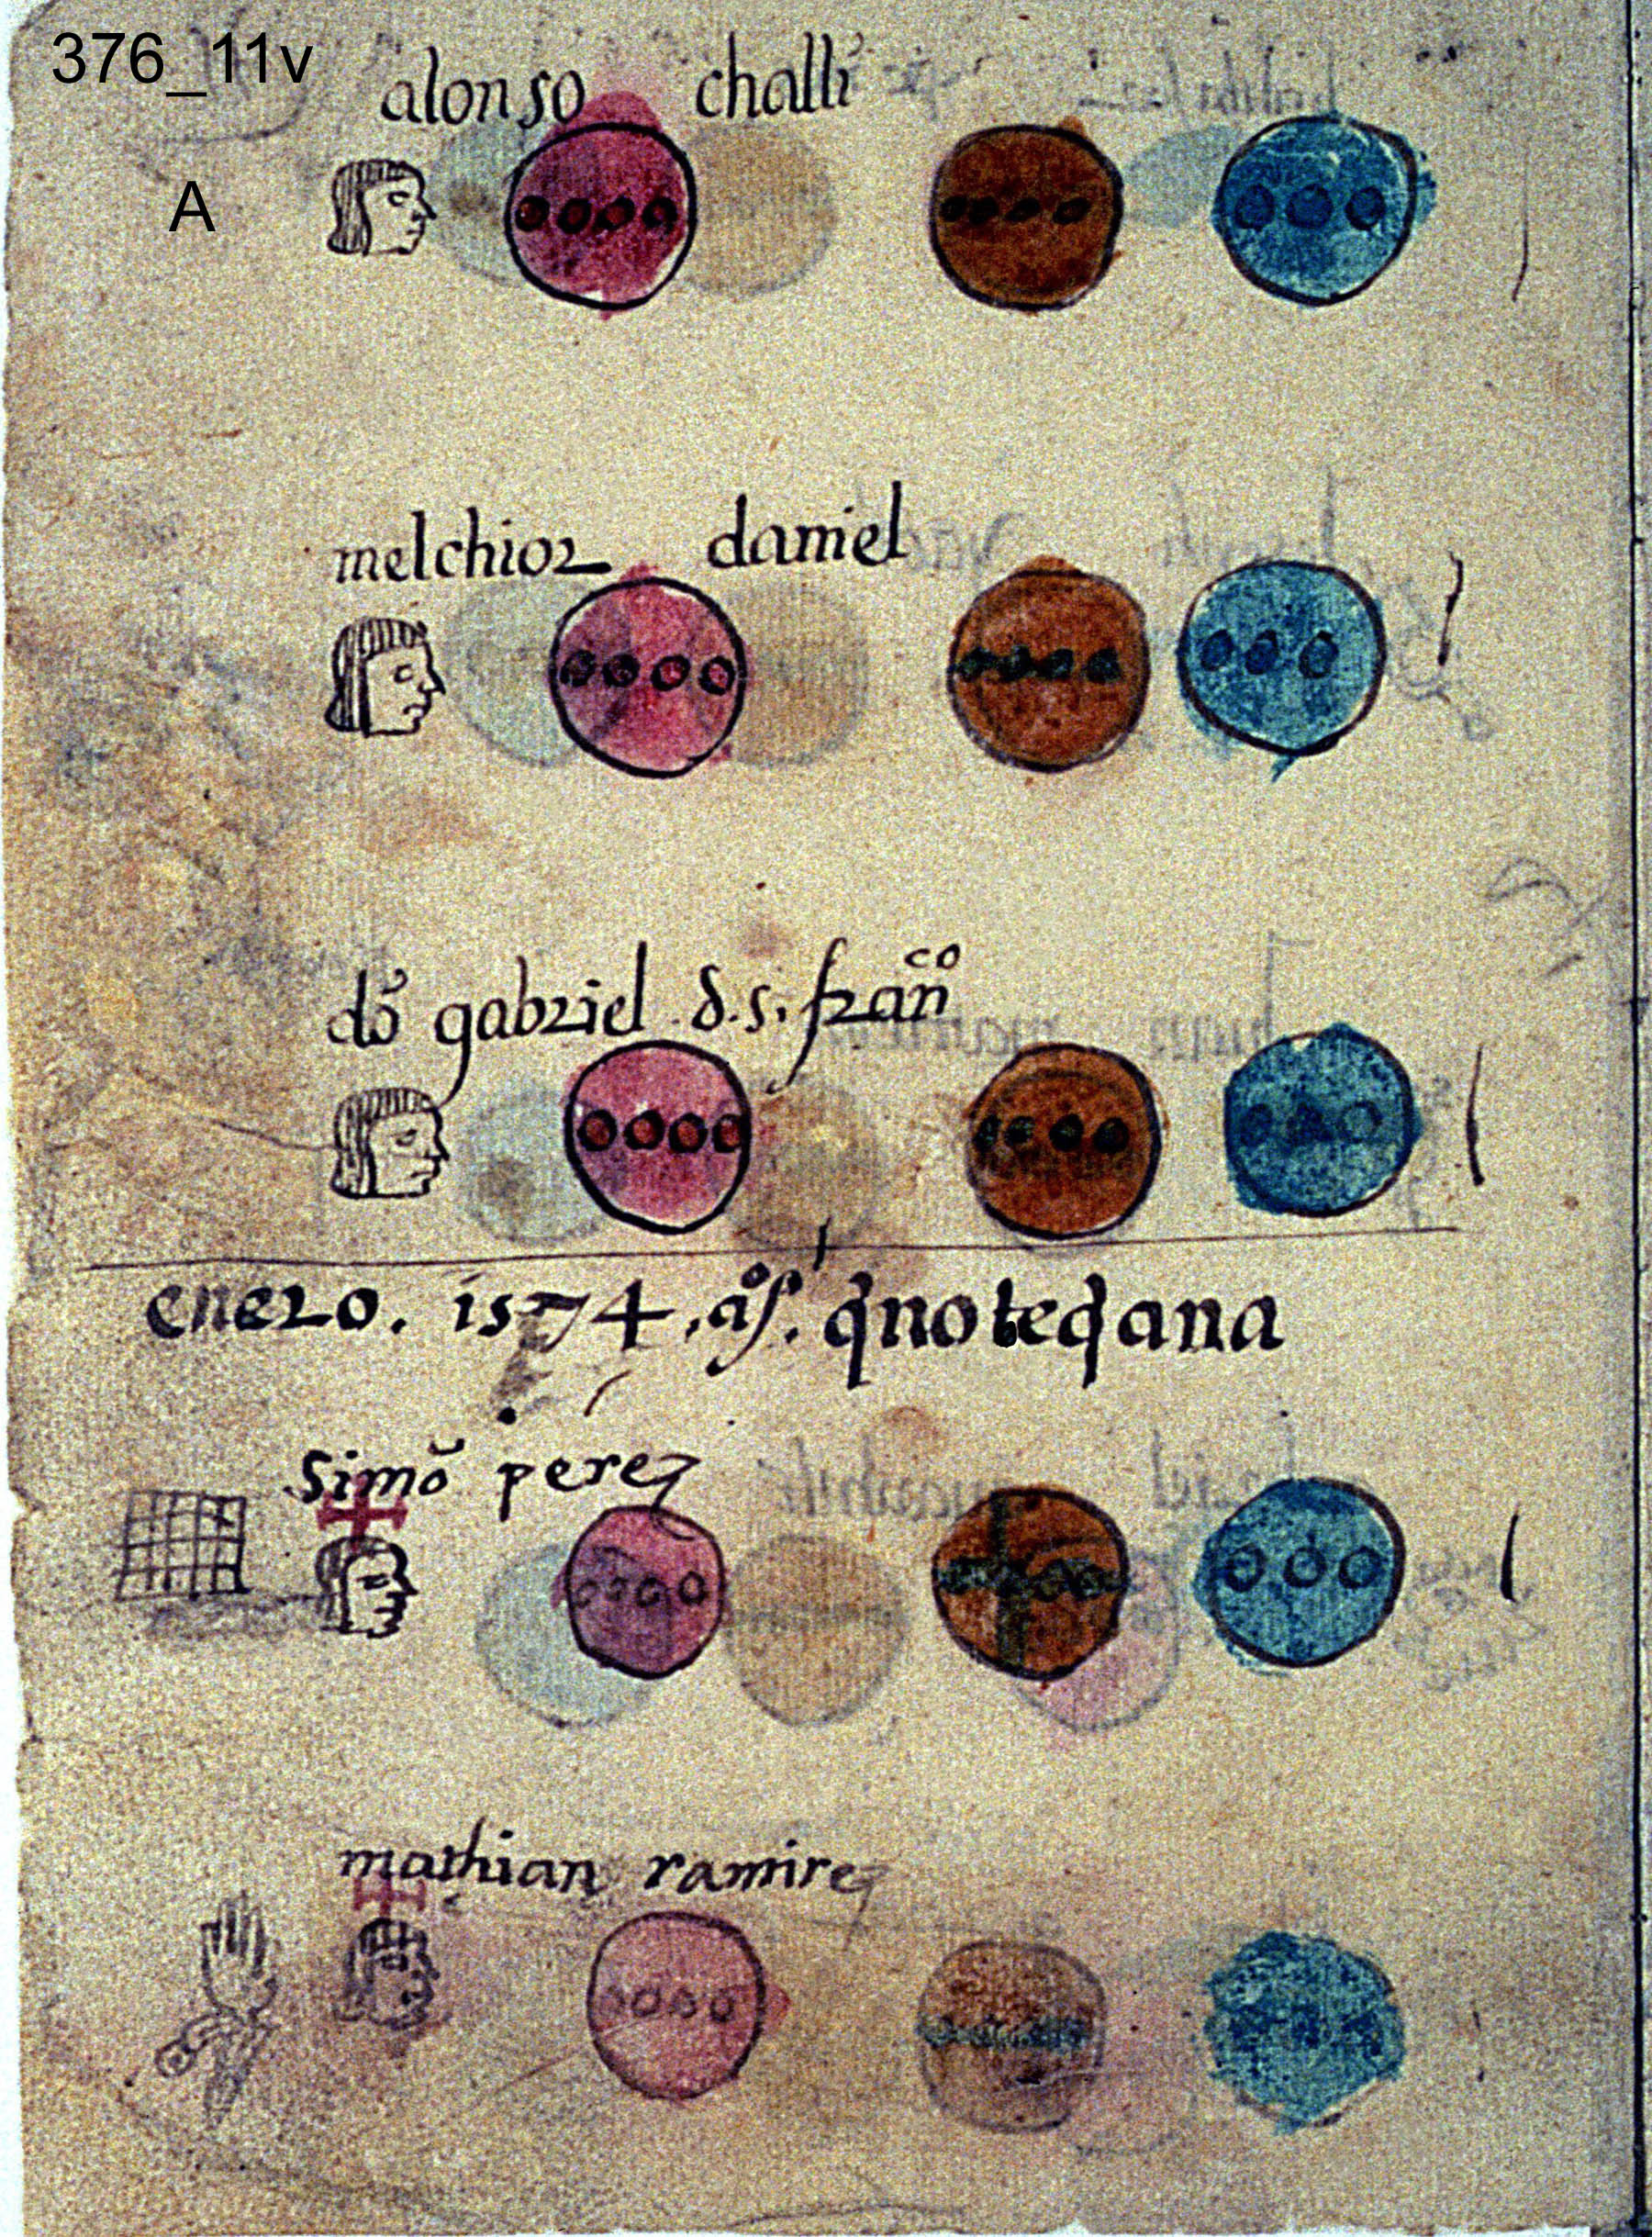 376_11v
alonso challi
A
melchior daniel
dō gabriel d.s. fran̄co
enero. 1574. as. qnoteqana
simō perez
mathian ramirez